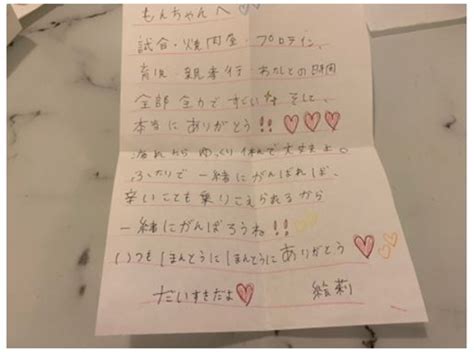 もんちゃんへ♡
試合・焼肉屋・プロテイン、
育児・親孝行 あたしとの時間
全部全力ですごいな そして、
本当にありがとう!! ♡♡♡
疲れたら ゆっくり休んで大丈夫よ。
ふたりで一緒にがんばれば、
辛いことも乗りこえられるから
一緒にがんばろうね!!♡♡
いつもほんとうにほんとうにありがとう♡♡♡
だいすきだよ♡ 絵莉